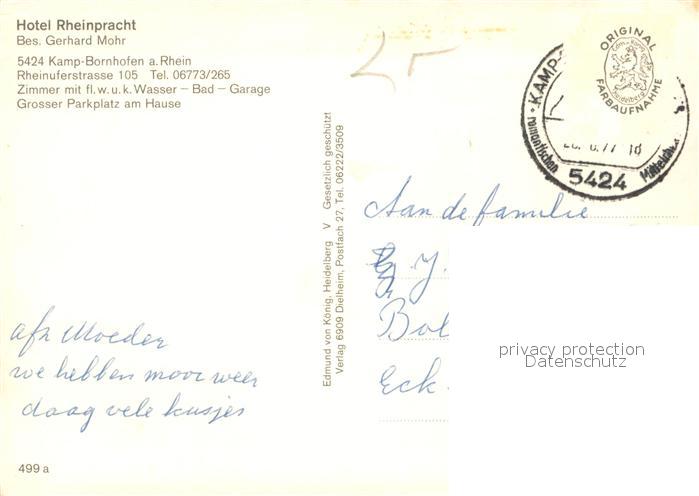 Hotel Rheinpracht
Bes. Gerhard Mohr
5424 Kamp-Bornhofen a. Rhein
Rheinuferstrasse 105 Tel. 06773/265
Zimmer mit fl. w. u. k. Wasser – Bad – Garage
Grosser Parkplatz am Hause
afz Moeder
we hebben moor weer
daag vele kusjes
499 a
Edmund von König, Heidelberg V Gesetzlich geschützt
Verlag 6909 Dielheim, Postfach 27, Tel. 06222/3509
25
ORIGINAL
FARBAUFNAHME
Edm. von König
Heidelberg
KAMP-
romantischen
5424
Aan de familie
Y.
Bol
Eck
privacy protection
Datenschutz